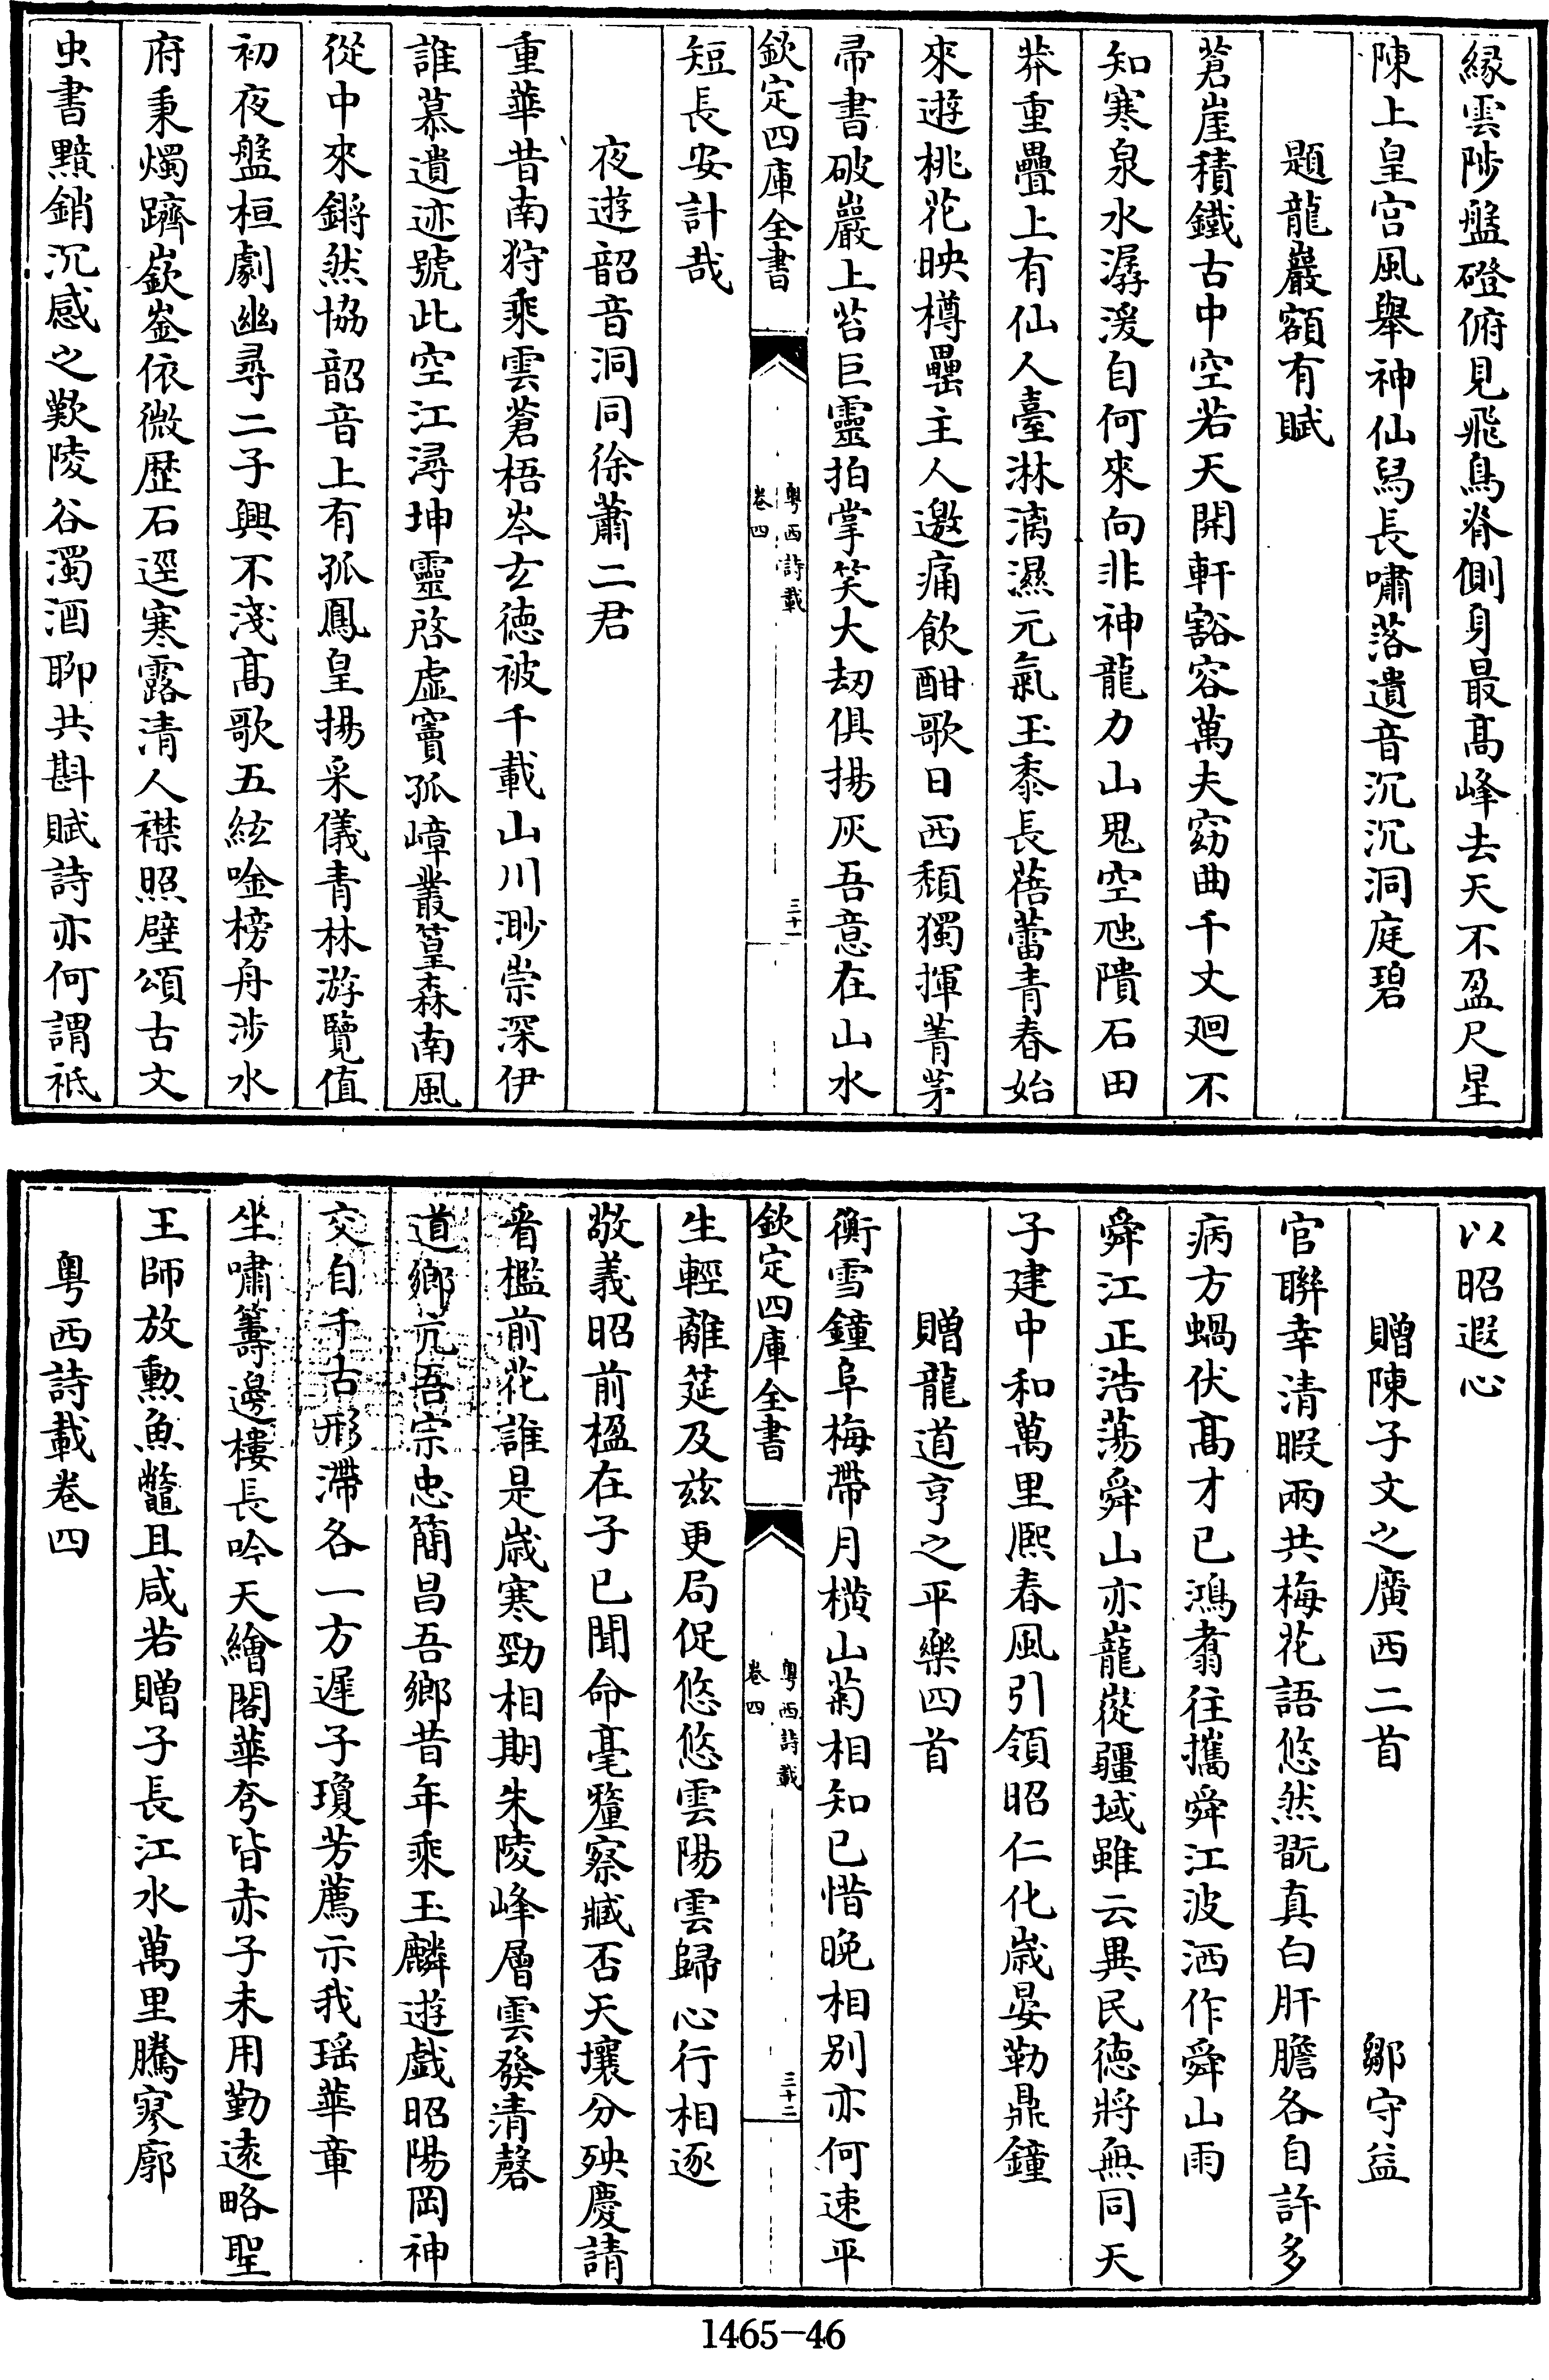 緣雲陟盤磴俯見飛鳥脊側身最髙峰去天不盈尺星
陳上皇宫風舉神仙舄長嘯落遺音沉沉洞庭碧
題龍巖額有賦
蒼崖積鐵古中空若天開軒豁容萬夫窈曲千丈廻不
知寒泉水潺湲自何來向非神龍力山鬼空虺隤石田
莽重疊上有仙人臺淋漓濕元氣玉黍長蓓蕾青春始
來遊桃花映樽罍主人邀痛飲酣歌日西頽獨揮菁茅
帚書破巖上苔巨靈拍掌笑大刼俱揚灰吾意在山水
欽定四庫全書
粤西詩載
卷四
三十一
短長安計哉
夜遊韶音洞同徐蕭二君
重華昔南狩乘雲蒼梧岑玄徳被千載山川渺崇深伊
誰慕遺迹號此空江潯坤靈啓虚竇孤嶂叢篁森南風
從中來鏘然協韶音上有孤鳳皇揚采儀青林游覽值
初夜盤桓劇幽尋二子興不淺髙歌五絃唫榜舟涉水
府秉燭躋嶔崟依微歴石逕寒露清人襟照壁頌古文
虫書黯銷沉感之歎陵谷濁酒聊共斟賦詩亦何謂祗
以昭遐心
贈陳子文之廣西二首
鄒守益
官聨幸清暇兩共梅花語悠然翫真白肝膽各自許多
病方蝸伏髙才已鴻翥往攜舜江波洒作舜山雨
舜江正浩蕩舜山亦巃嵸疆域雖云異民徳將無同天
子建中和萬里熈春風引領昭仁化嵗晏勒鼎鐘
贈龍道亨之平樂四首
衡雪鐘阜梅帶月橫山菊相知已惜晚相別亦何速平
欽定四庫全書
粤西詩載
卷四
三十二
生輕離筵及兹更局促悠悠雲陽雲歸心行相逐
敬義昭前楹在子已聞命毫釐察臧否天壤分殃慶請
看檻前花誰是嵗寒勁相期朱陵峰層雲發清磬
道鄉亢吾宗忠簡昌吾鄉昔年乘玉麟遊戯昭陽岡神
交自千古形滯各一方遲子瓊芳薦示我瑶華章
坐嘯籌邊樓長吟天繪閣華夸皆赤子未用勤逺略聖
王師放勲魚鼈且咸若贈子長江水萬里騰寥廓
粤西詩載卷四
1465-46